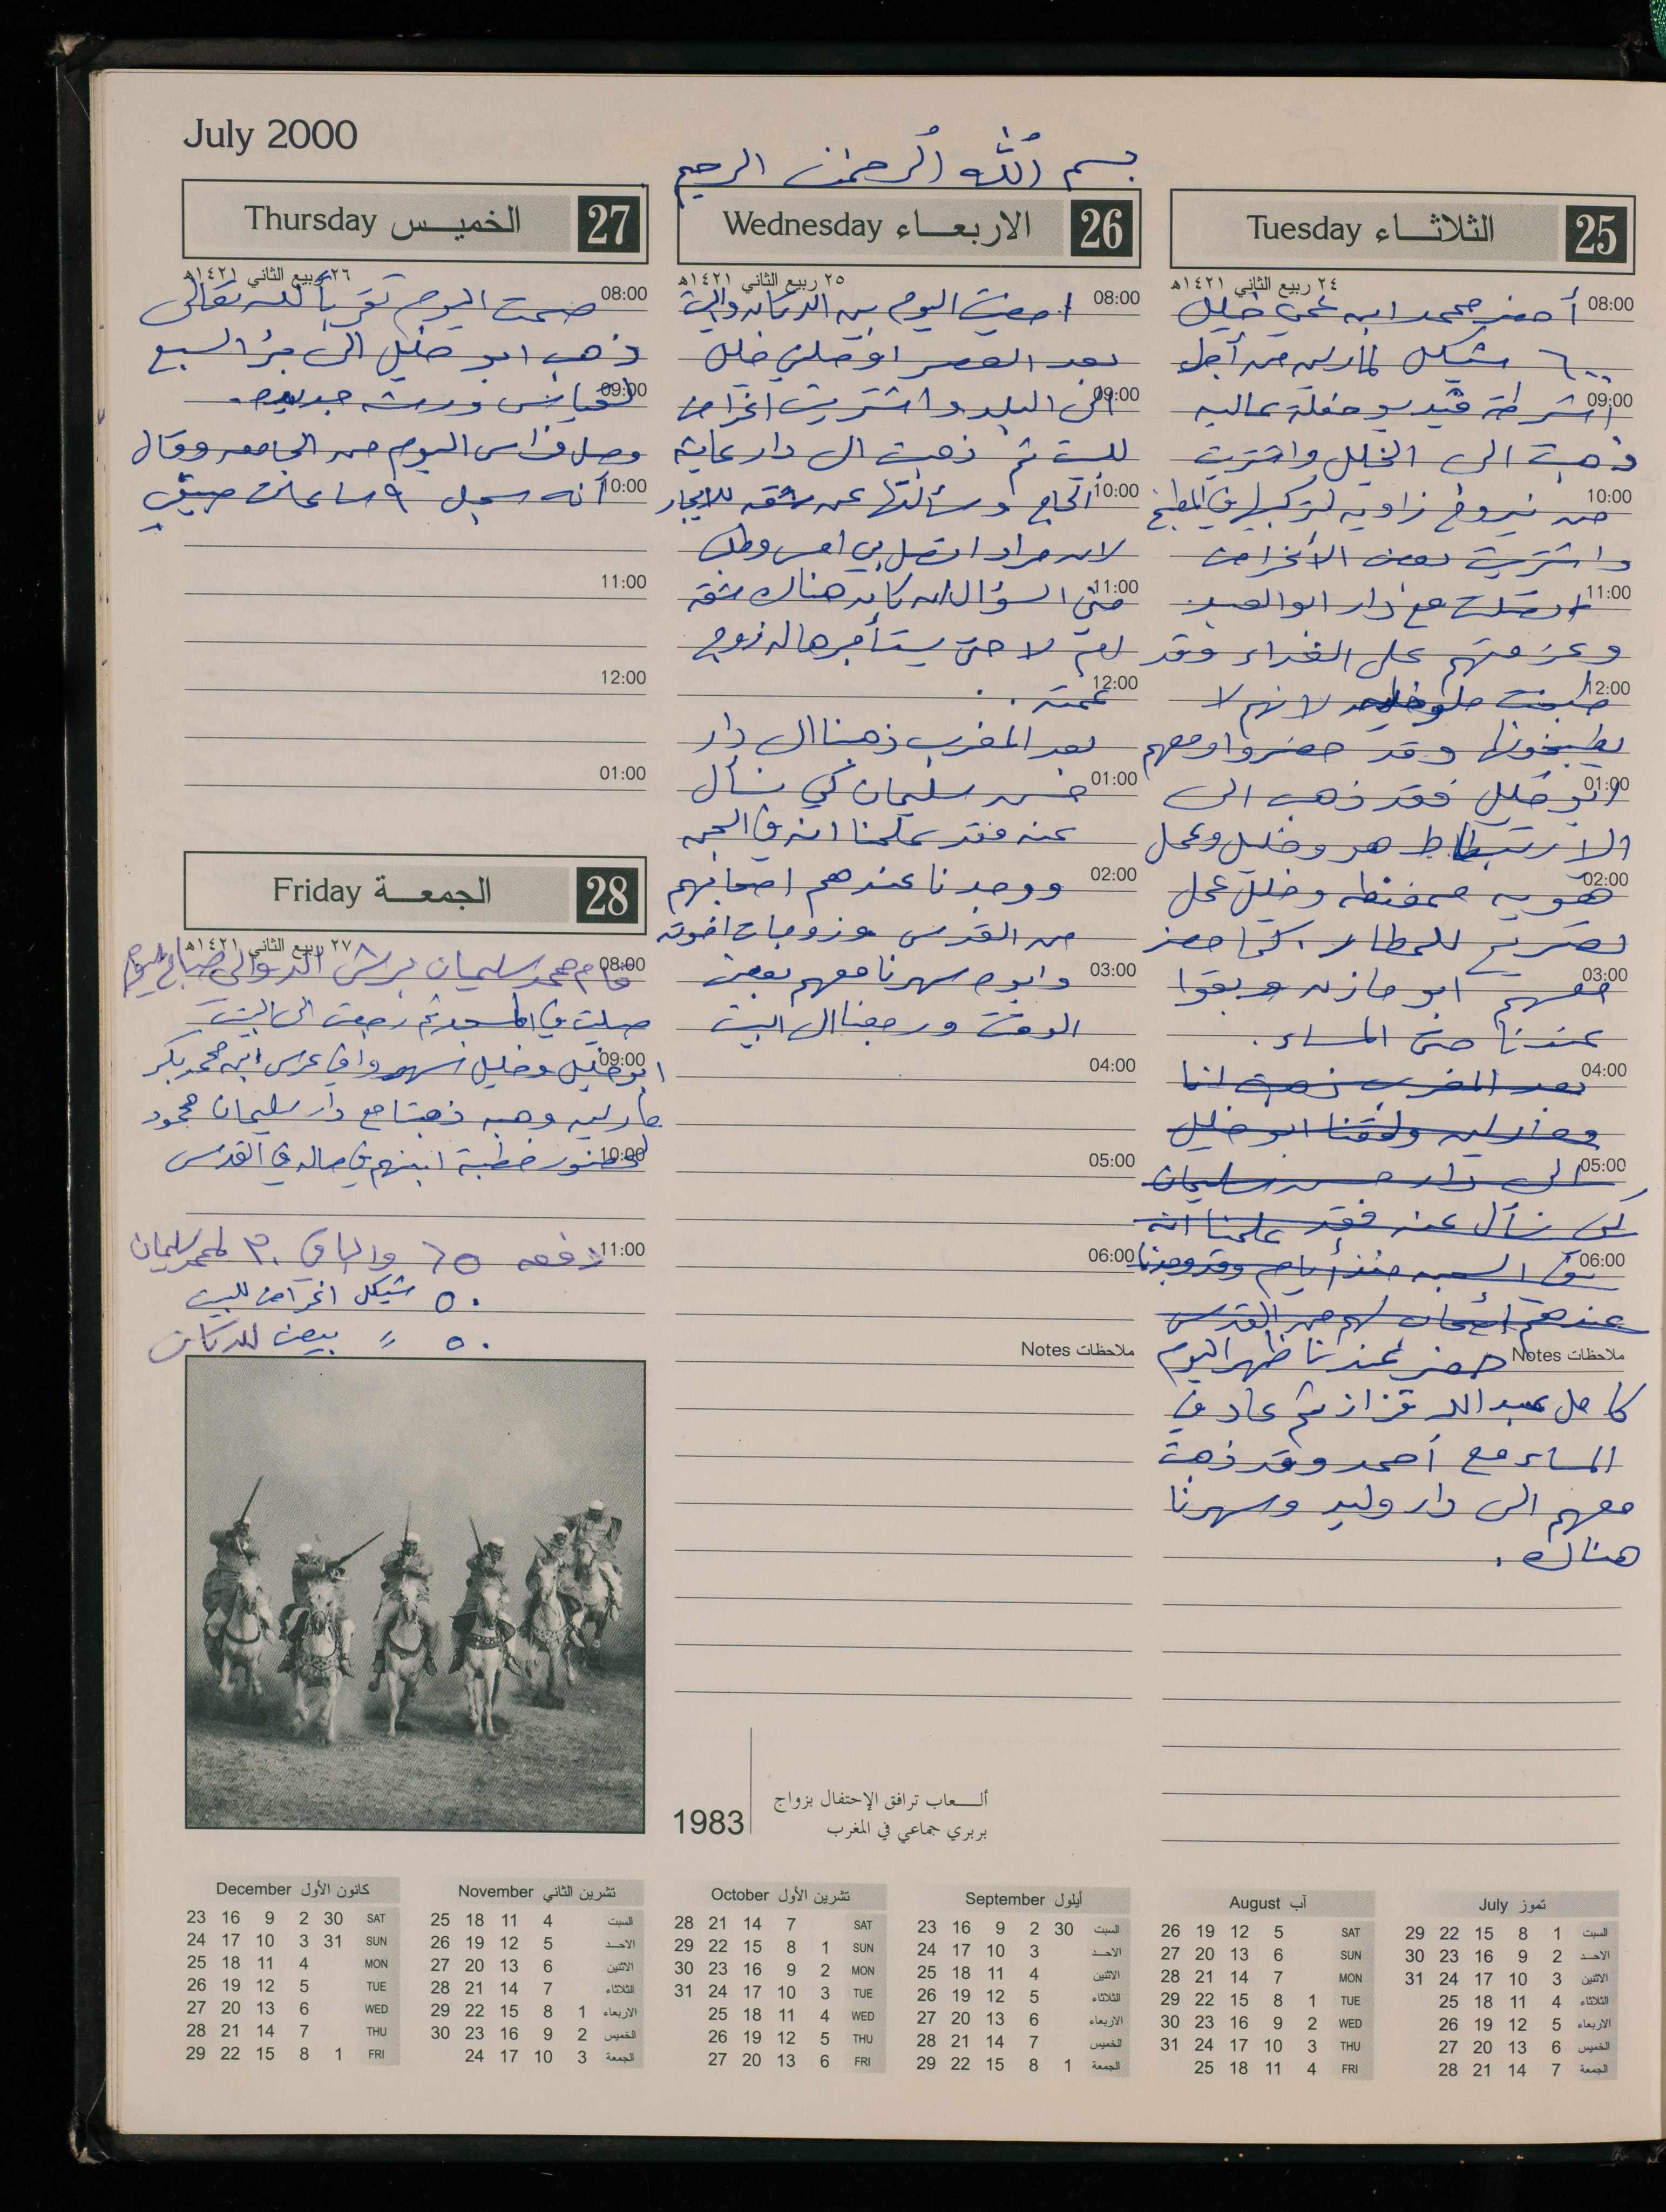 July 2000
بسم الله الرحمن الرحيم
الثلاثاء Tuesday 25
٢٤ ربيع الثاني ١٤٢١هـ
08:00
أحضر محمد ابن عمي خليل
٦٠٠ شيكل لمارلين من أجل
09:00
اشرطة فيديو حفلة عاليه
ذهبت الى الخليل واشتريت
10:00
من نيروخ زاويه لتركيبها في المطبخ
واشتريت بعض الأغراض
11:00
اتصلت مع دار ابو العبد
وعزمتهم على الغداء وقد
12:00
طبخت ملوخيه لانهم لا
يطبخونها وقد حضروا ومعهم
01:00
ابو خليل فقد ذهب الى
الارتباط هو وخليل وعمل
02:00
هويه ممغنطه وخليل عمل
تصريح للمطار. كما حضر
03:00
معهم ابو مازن وبقوا
عندنا حتى المساء.
04:00
بعد المغرب ذهبت انا
ومارلين ولحقنا ابو خليل
05:00
الى دار حسن سليمان
كي نسأل عنه فقد علمنا انه
06:00
في السجن منذ أيام وقد وجدنا
عندهم اصحاب لهم من القدس
ملاحظات Notes
حضر عندنا ظهر اليوم
كامل عبد الله قزاز ثم عاد في
المساء مع أحمد وقد ذهبت
معهم الى دار وليد وسهرنا
هناك.
الاربعاء Wednesday 26
٢٥ ربيع الثاني ١٤٢١هـ
08:00
امضيت اليوم بين الدكان والبيت
بعد العصر اوصلني خليل
09:00
الى البلد واشتريت اغراض
للبيت ثم ذهبت الى دار عايشة
10:00
الحاج وسألتها عن شقه للايجار
لان مراد اتصل بي امس وطلب
11:00
مني السؤال ان كان هناك شقه
لهم لا حتى يستأجرها له زوج
12:00
عمته.
بعد المغرب ذهبنا الى دار
01:00
حسن سليمان كي نسأل
عنه فقد علمنا انه في السجن
02:00
ووجدنا عندهم اصحابهم
من القدس وزوجات اخوته
03:00
وابوه سهرنا معهم بعض
الوقت ورجعنا الى البيت
04:00
05:00
06:00
ملاحظات Notes
الخميس Thursday 27
٢٦ ربيع الثاني ١٤٢١هـ
08:00
صمت اليوم تقرباً لله تعالى
ذهب ابو خليل الى بئر السبع
09:00
لقياس ورشه جديده.
وصل فراس اليوم من الجامعه وقال
10:00
أنه سجل ٩ ساعات صيفي
11:00
12:00
01:00
الجمعة Friday 28
٢٧ ربيع الثاني ١٤٢١هـ
08:00
قام محمد سليمان برش الدوالي صباح اليوم
صليت في المسجد ثم رجعت الى البيت
09:00
ابو خليل وخليل سهروا في عرس ابن محمد بكر
مارلين وهبه ذهبتا مع دار سليمان محمود
10:00
لحضور خطبة ابنهم في صاله في القدس
11:00
دفعه ٦٥ والباقي ٣٠ لمحمد سليمان
٥٠ شيكل اغراض للبيت
٥٠ " بيض للدكان
1983
ألعاب ترافق الإحتفال بزواج
بربري جماعي في المغرب
تموز July
السبت 1 8 15 22 29
الاحد 2 9 16 23 30
الاثنين 3 10 17 24 31
الثلاثاء 4 11 18 25
الاربعاء 5 12 19 26
الخميس 6 13 20 27
الجمعة 7 14 21 28
آب August
SAT 5 12 19 26
SUN 6 13 20 27
MON 7 14 21 28
TUE 1 8 15 22 29
WED 2 9 16 23 30
THU 3 10 17 24 31
FRI 4 11 18 25
أيلول September
السبت 30 2 9 16 23
الاحد 3 10 17 24
الاثنين 4 11 18 25
الثلاثاء 5 12 19 26
الاربعاء 6 13 20 27
الخميس 7 14 21 28
الجمعة 1 8 15 22 29
تشرين الأول October
SAT 7 14 21 28
SUN 1 8 15 22 29
MON 2 9 16 23 30
TUE 3 10 17 24 31
WED 4 11 18 25
THU 5 12 19 26
FRI 6 13 20 27
تشرين الثاني November
السبت 4 11 18 25
الاحد 5 12 19 26
الاثنين 6 13 20 27
الثلاثاء 7 14 21 28
الاربعاء 1 8 15 22 29
الخميس 2 9 16 23 30
الجمعة 3 10 17 24
كانون الأول December
SAT 30 2 9 16 23
SUN 31 3 10 17 24
MON 4 11 18 25
TUE 5 12 19 26
WED 6 13 20 27
THU 7 14 21 28
FRI 1 8 15 22 29